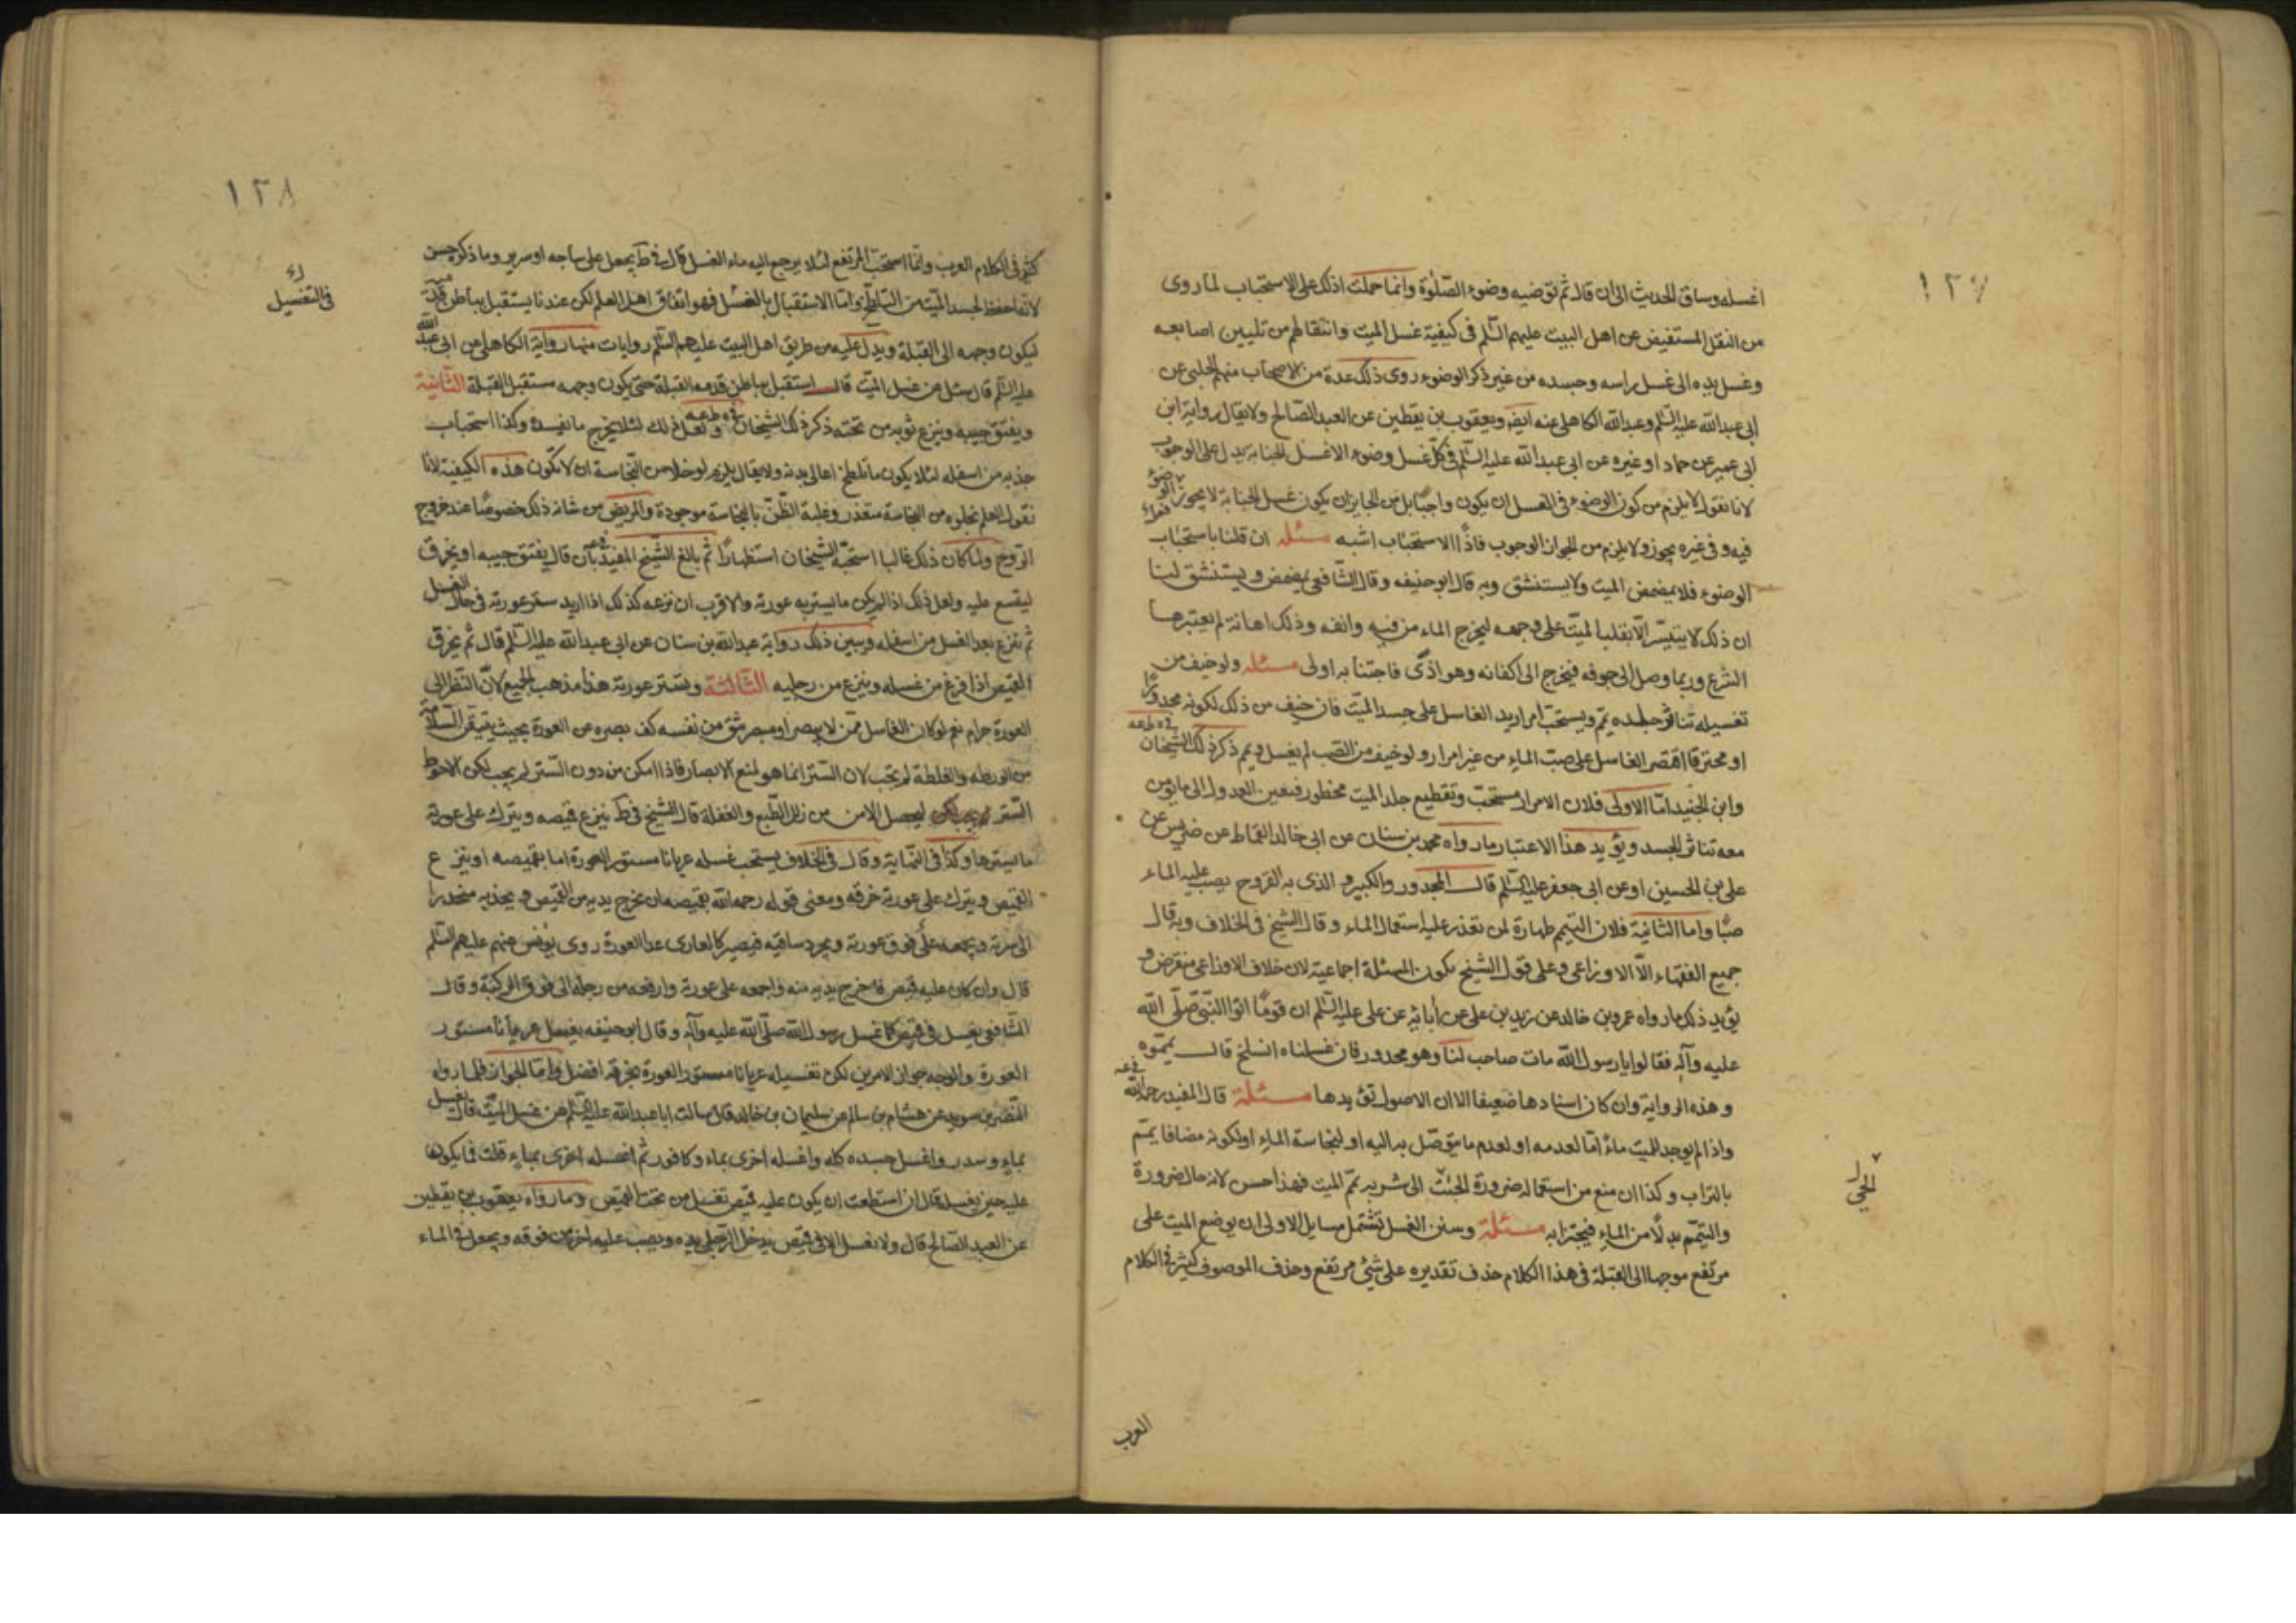 ١٢٧
اغسله وساق الحديث الى ان قال ثم توضيه وضوء الصلوة وانما حملت ذلك على الاستحباب لما روى
من النقل المستفيض عن اهل البيت عليهم السلم فى كيفية غسل الميت وانتقالهم من تليين اصابعه
وغسل يده الى غسل راسه وجسده من غير ذكر الوضوء روى ذلك عدة من الاصحاب منهم الحلبى عن
ابى عبدالله عليه السلم وعبدالله الكاهلى عنه ايضا ويعقوب بن يقطين عن العبد الصالح ولا يقال رواية ابن
ابى عمير عن حماد او غيره عن ابى عبدالله عليه السلم فى كل غسل وضوء الا غسل الجنابة يدل على الوجوب
لانا نقول لا يلزم من كون الوضوء فى الغسل ان يكون واجبا بل من الجايز ان يكون غسل الجنابة لا يجوز الوضوء
فيه وفى غيره يجوز ولا يلزم من الجواز الوجوب فاذا الاستحباب اشبه مسئله ان قلنا باستحباب
الوضوء فلا يمضمض الميت ولا يستنشق وبه قال ابو حنيفه وقال الشافعى يمضمض ويستنشق لنا
ان ذلك لا يتيسر الا بقلب الميت على وجهه ليخرج الماء من فيه وانفه وذلك اهانة لم يعتبرها
الشرع وربما وصل الى جوفه فيخرج الى اكفانه وهو اذى فاجتنابه اولى مسئله ولو خيف من
تغسيله تناثر جلده يمم ويستحب امرار يد الغاسل على جسد الميت فان خيف من ذلك لكونه مجدورا
او محترقا اقتصر الغاسل على صب الماء من غير امرار ولو خيف من الصب لم يغسل ويمم ذكر ذلك الشيخان
وابن الجنيد اما الاولى فلان الامرار مستحب وتقطيع جلد الميت محظور فيتعين العدول الى ما يؤمن
معه تناثر الجسد ويؤيد هذا الاعتبار ما رواه محمد بن سنان عن ابى خالد القماط عن ضريس عن
على بن الحسين او عن ابى جعفر عليه السلم قال المجدور والكسير والذى به القروح يصب عليه الماء
صبا واما الثانية فلان التيمم طهارة لمن تعذر عليه استعمال الماء وقال الشيخ فى الخلاف وبه قال
جميع الفقهاء الا الاوزاعى وعلى قول الشيخ يكون المسئلة اجماعية لان خلاف الاوزاعى منقرض و
يؤيد ذلك ما رواه عمرو بن خالد عن زيد بن على عن آبائه عن على عليه السلم ان قوما اتوا النبى صلى الله
عليه وآله فقالوا يا رسول الله مات صاحب لنا وهو مجدور فان غسلناه انسلخ قال يمموه
وهذه الرواية وان كان اسنادها ضعيفا الا ان الاصول تؤيدها مسئلة قال المفيد رحمه الله
واذا لم يوجد للميت ماء اما لعدمه او لعدم ما يتوصل به اليه او لنجاسة الماء او لكونه مضافا يمم
بالتراب وكذا ان منع من استعماله ضرورة الجنب الى شربه يمم الميت فهذا حسن لانه حال ضرورة
والتيمم بدلا من الماء فيجتزا به مسئلة وسنن الغسل تشتمل مسايل الاولى ان يوضع الميت على
مرتفع موجها الى القبلة فى هذا الكلام حذف تقديره على شئ مرتفع وحذف الموصوف كثير فى الكلام
الحى
العرب
١٢٨
كثير فى الكلام العرب وانما استحب المرتفع لئلا يرجع اليه ماء الغسل قال فى ط يجعل على ساجه او سرير وما ذكر حسن
لانه احفظ لجسد الميت من التلطخ واما الاستقبال بالغسل فهو اتفاق اهل العلم لكن عندنا يستقبل بباطن قدميه
ليكون وجهه الى القبلة ويدل عليه من طريق اهل البيت عليهم السلم روايات منها رواية الكاهلى عن ابى عبد الله
عليه السلم قال سئل عن غسل الميت قال استقبل بباطن قدمه القبلة حتى يكون وجهه مستقبل القبلة الثانية
ويفتق جيبه وينزع ثوبه من تحته ذكر ذلك الشيخان ولعل ذلك لئلا يخرج ما يفسده وكذا استحباب
جذبه من اسفله لئلا يكون ما تلطخ اعالى بدنه ولا يقال يلزم لو خلا من النجاسة ان لا تكون هذه الكيفية لانا
نقول العلم بخلوه من النجاسة متعذر وغلبة الظن بالنجاسة موجودة والمريض من شانه ذلك خصوصا عند خروج
الروح ولما كان ذلك غالبا استحبه الشيخان استظهارا ثم بالغ الشيخ المفيد بان قال يفتق جيبه او يخرق
ليتسع عليه ولعل ذلك اذا لم يكن ما يستر به عورته والاقرب ان نزعه كذلك اذا اريد ستر عورته فى حال الغسل
ثم نزع بعد الغسل من اسفله ويبين ذلك رواية عبدالله بن سنان عن ابى عبدالله عليه السلم قال ثم يخرق
القميص اذا فرغ من غسله وينزع من رجليه الثالثة ويستر عورته هذا مذهب الجميع لان النظر الى
العورة حرام نعم لو كان الغاسل ممن لا يبصر او مبصر يثق من نفسه كف بصره عن العورة بحيث يتيقن السلامة
من الورطة والغلطة لم يجب لان الستر انما هو لمنع الابصار فاذا امكن من دون الستر لم يجب لكن الاحوط
الستر ليحصل الامن من زلل الطبع والغفلة قال الشيخ فى ط ينزع قميصه ويترك على عورته
ما يسترها وكذا فى النهاية وقال فى الخلاف يستحب غسله عريانا مستور العورة اما بقميصه او ينزع
القميص ويترك على عورته خرقه ومعنى قوله رحمه الله بقميصه ان يخرج يديه من القميص ويجذبه منحدرا
الى سرته ويجمعه على فوق عورته ويجرد ساقيه فيصير كالعارى عدا العورة روى يونس عنهم عليهم السلم
قال وان كان عليه قميص فاخرج يديه منه واجمعه على عورته وارفعه من رجله الى فوق الركبة وقال
الشافعى يغسل فى قميص كما غسل رسول الله صلى الله عليه وآله وقال ابو حنيفه يغسل عريانا مستور
العورة والوجه جواز الامرين لكن تغسيله عريانا مستور العورة بخرقه افضل واما الجواز فلما رواه
النضر بن سويد عن هشام بن سالم عن سليمان بن خالد قال سالت ابا عبدالله عليه السلم عن غسل الميت قال يغسل
بماء وسدر واغسل جسده كله واغسله اخرى بماء وكافور ثم اغسله اخرى بماء قلت فما يكون
عليه حين يغسله قال ان استطعت ان يكون عليه قميص تغسل من تحت القميص وما رواه يعقوب بن يقطين
عن العبد الصالح قال ولا يغسل الا فى قميص يدخل الرجل يده ويصب عليه من فوقه ويجعل فى الماء
فى التغسيل